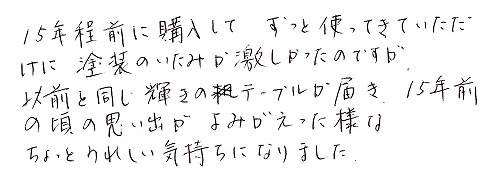 15年程前に購入して ずっと使ってきていただ
けに 塗装のいたみが激しかったのですが、
以前と同じ輝きのテーブルが届き、15年前
の頃の思い出が よみがえった様な
ちょっとうれしい気持ちになりました.